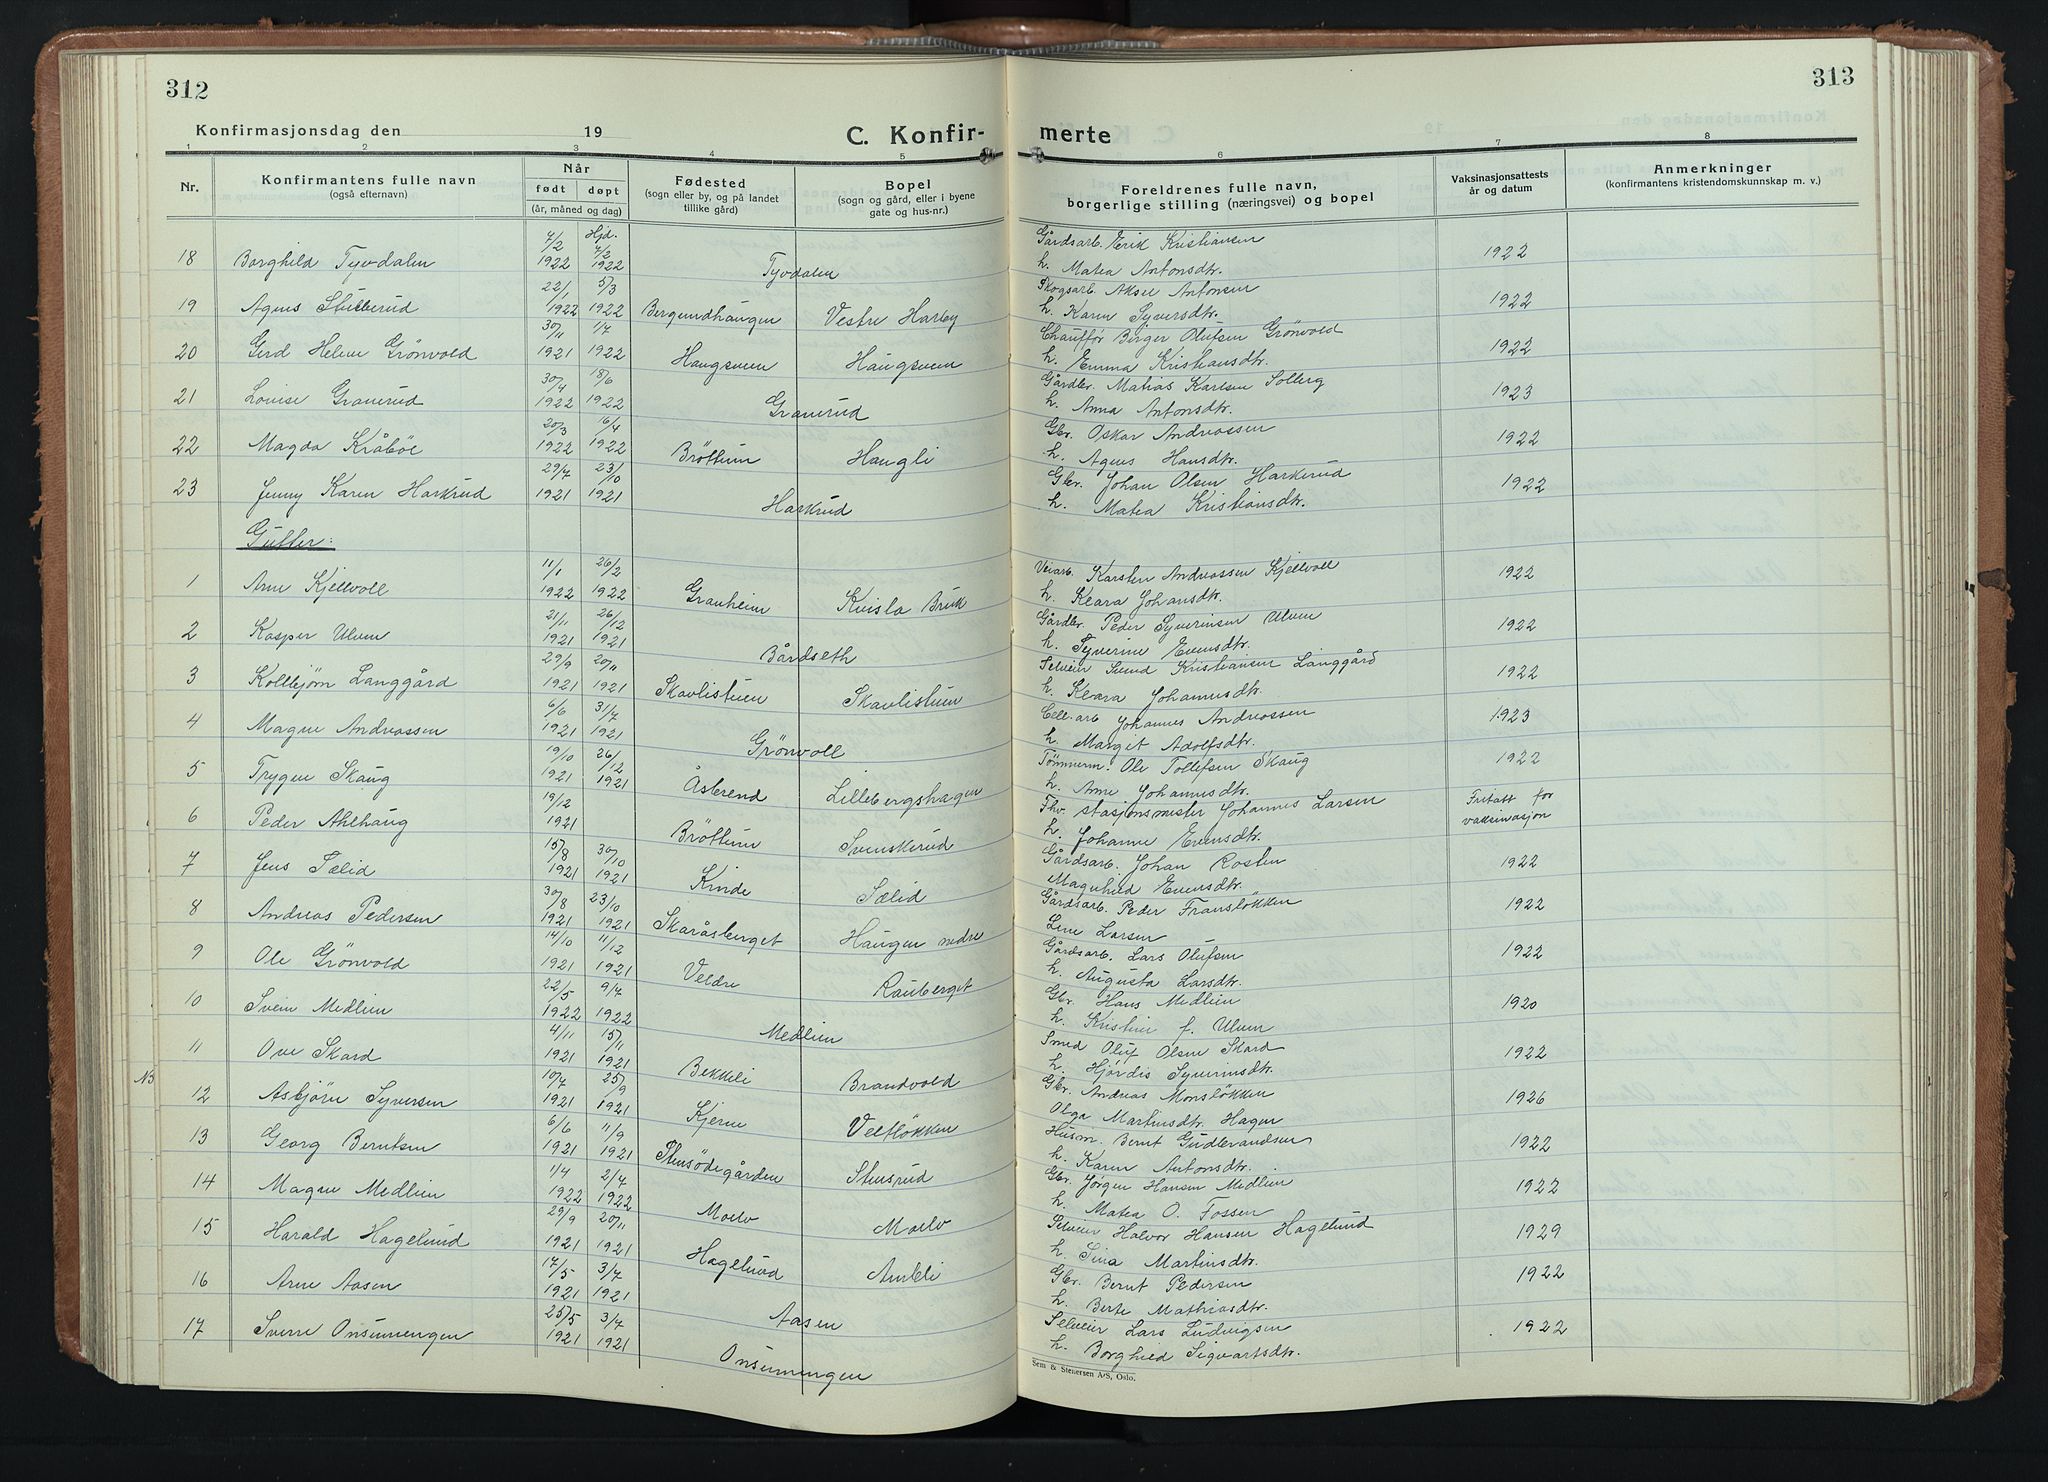 312
313
Konfirmasjonsdag den 19
C. Konfir-
merte
1 2 3 4 5 6 7 8
Nr.
Konfirmantens fulle navn
(også efternavn)
Når
født døpt
(år, måned og dag)
Fødested
(sogn eller by, og på landet
tillike gård)
Bopel
(sogn og gård, eller i byene
gate og hus-nr.)
Foreldrenes fulle navn,
borgerlige stilling (næringsvei) og bopel
Vaksinasjonsattests
år og datum
Anmerkninger
(konfirmantens kristendomskunnskap m. v.)
18 Borghild Tyvdalen 4/2 1922 Hjd. 4/2 1922 Tyvdalen Gårdsarb. Erik Kristiansen 1922
h. Matea Antonsdtr.
19 Agnes Stubberud 22/1 1922 5/3 1922 Bergundhaugen Vestre Harby Skogsarb. Aksel Antonsen 1922
h. Karen Syversdtr.
20 Gerd Helene Grönvold 30/11 1921 1/4 1922 Haugsveen Haugsveen Chauffør Birger Olufsen Grönvold 1922
h. Emma Kristiansdtr.
21 Louise Granerud 30/4 1922 18/6 1922 Granerud Gårdbr. Matias Karlsen Solberg 1923
h. Anna Antonsdtr.
22 Magda Kråböe 20/3 1922 16/4 1922 Bröttum Haugli Gbr. Oskar Andreassen 1922
h. Agnes Hansdtr.
23 Jenny Karen Harkrud 29/7 1921 23/10 1921 Harkrud Gbr. Johan Olsen Harkerud 1922
h. Matea Kristiansdtr.
Gutter:
1 Arne Kjellvoll 11/1 1922 26/2 1922 Granheim Kvisla Bruk Veiarb. Karsten Andreassen Kjellvoll 1922
h. Klara Johansdtr.
2 Kasper Ulven 21/11 1921 26/12 1921 Bårdseth Gårdbr. Peder Syverinsen Ulven 1922
h. Syverine Evensdtr.
3 Kolbjörn Langgård 29/9 1921 20/11 1921 Skavlistuen Skavlistuen Selveier Svend Kristiansen Langgård 1922
h. Klara Johannesdtr.
4 Magne Andreassen 6/6 1921 31/7 1921 Grönvoll Cell.arb Johannes Andreassen 1923
h. Marget Adolfsdtr.
5 Trygve Skaug 19/10 1921 26/12 1921 Åsterend Lillebergshagen Tömmerm. Ole Tollefsen Skaug 1922
h. Arne Johannesdtr.
6 Peder Ahlhaug 19/12 1921 Bröttum Svenskerud Fhv. stasjonsmester Johannes Larsen Fritatt for
vaksinasjon
h. Johanne Evensdtr.
7 Jens Sælid 15/8 1921 30/10 1921 Kinde Sælid Gårdsarb. Johan Rosten 1922
Magnhild Evensdtr.
8 Andreas Pedersen 30/8 1921 23/10 1921 Skaråsberget Haugen nedre Gårdsarb. Peder Fransløkken 1922
Lene Larsen
9 Ole Grönvold 14/10 1921 11/12 1921 Veldre Rauberget Gårdsarb. Lars Olufsen 1922
h. Augusta Larsdtr.
10 Svein Medlien 22/5 1922 9/7 1922 Medlien Gbr. Hans Medlien 1920
h. Kristine f. Ulven
11 Ove Skard 4/11 1921 15/11 1921 Bekkeli Brandvold Smed Oluf Olsen Skard 1922
h. Hjördis Syverinsdtr.
N3
12 Asbjörn Syversen 10/7 1921 25/9 1921 Kjerne Veltløkken Gbr. Andreas Monsløkken 1926
Olga Martinsdtr. Hagen
13 Georg Berntsen 6/6 1921 11/9 1921 Stensödegården Stensrud Husm. Bernt Gudbrandsen 1922
h. Karen Antonsdtr.
14 Magne Medlien 1/4 1922 2/4 1922 Moelv Moelv Gbr. Jörgen Hansen Medlien 1922
h. Matea O. Fossen
15 Harald Hagelund 29/9 1921 20/11 1921 Hagelund Amleli Selveier Halvor Hansen Hagelund 1929
h. Sina Martinsdtr.
16 Arne Aasen 17/5 1921 3/7 1921 Aasen Gbr. Bernt Pedersen 1922
h. Berte Mathiasdtr.
17 Sverre Onsumengen 25/5 1921 3/7 1921 Onsumengen Selveier Lars Ludvigsen 1922
h. Borghild Sigvartsdtr.
Sem & Stenersen A/S, Oslo.